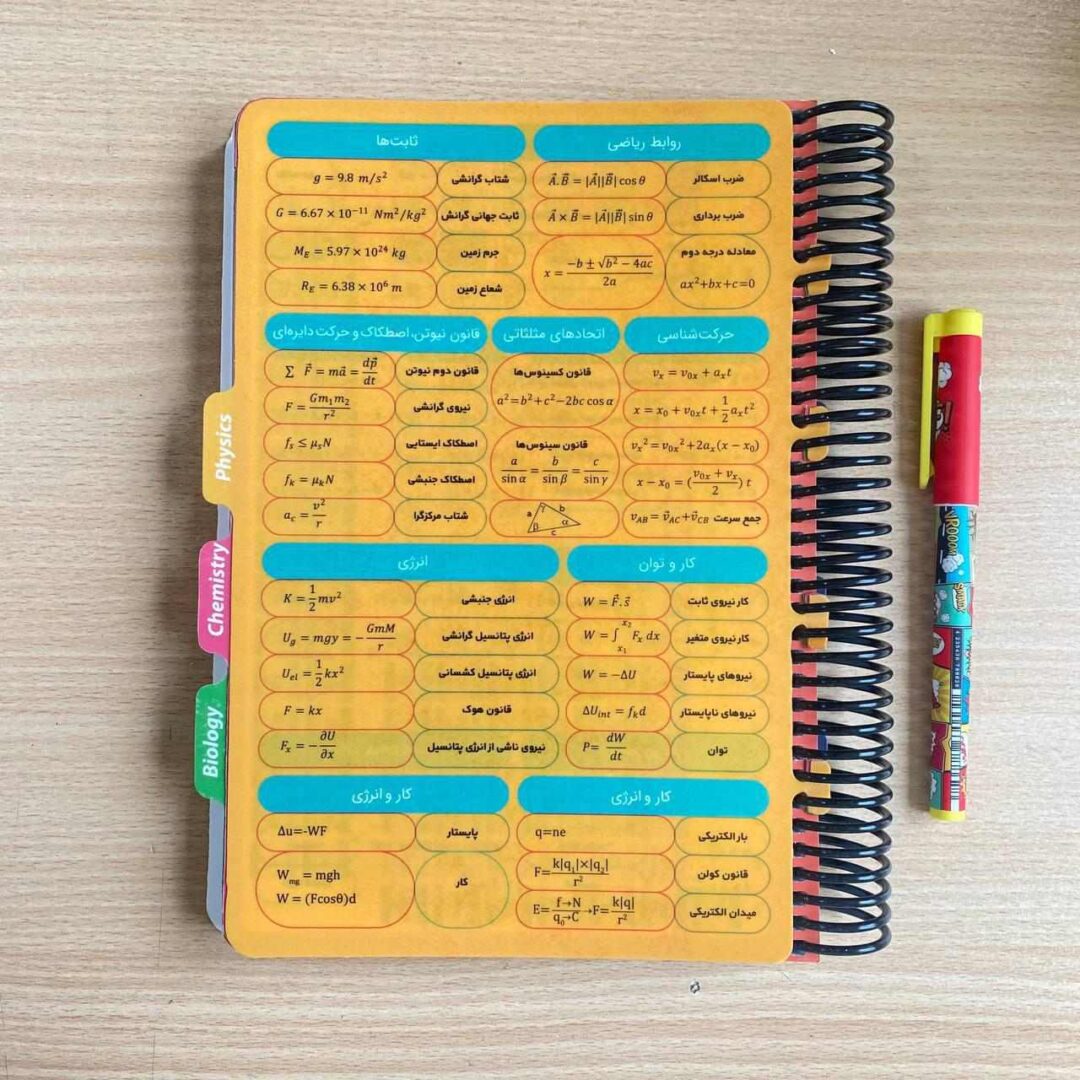 روابط ریاضی
ضرب اسکالر A⃗.B⃗ = |A⃗||B⃗| cos θ
ضرب برداری A⃗ × B⃗ = |A⃗||B⃗| sin θ
معادله درجه دوم
ax²+bx+c=0
x = (−b ± √(b² − 4ac))/2a
ثابت‌ها
شتاب گرانشی g = 9.8 m/s²
ثابت جهانی گرانش G = 6.67 × 10⁻¹¹ Nm²/kg²
جرم زمین M_E = 5.97 × 10²⁴ kg
شعاع زمین R_E = 6.38 × 10⁶ m
حرکت‌شناسی
vₓ = v₀ₓ + aₓt
x = x₀ + v₀ₓt + 1/2 aₓt²
vₓ² = v₀ₓ² + 2aₓ(x − x₀)
x − x₀ = ((v₀ₓ + vₓ)/2) t
جمع سرعت v⃗_AB = v⃗_AC + v⃗_CB
اتحادهای مثلثاتی
قانون کسینوس‌ها
a² = b² + c² − 2bc cos α
قانون سینوس‌ها
a/sin α = b/sin β = c/sin γ
a γ b
β α
c
قانون نیوتن، اصطکاک و حرکت دایره‌ای
قانون دوم نیوتن ∑ F⃗ = ma⃗ = dp⃗/dt
نیروی گرانشی F = Gm₁m₂/r²
اصطکاک ایستایی f_s ≤ μ_sN
اصطکاک جنبشی f_k = μ_kN
شتاب مرکزگرا a_c = v²/r
کار و توان
کار نیروی ثابت W = F⃗. s⃗
کار نیروی متغیر W = ∫_{x₁}^{x₂} Fₓ dx
نیروهای پایستار W = −ΔU
نیروهای ناپایستار ΔU_int = f_k d
توان P= dW/dt
انرژی
انرژی جنبشی K = 1/2 mv²
انرژی پتانسیل گرانشی U_g = mgy = − GmM/r
انرژی پتانسیل کشسانی U_el = 1/2 kx²
قانون هوک F = kx
نیروی ناشی از انرژی پتانسیل Fₓ = − ∂U/∂x
کار و انرژی
بار الکتریکی q=ne
قانون کولن F= k|q₁|×|q₂|/r²
میدان الکتریکی E= f→N/q₀→C →F= k|q|/r²
کار و انرژی
پایستار Δu=-WF
کار
W_mg = mgh
W = (Fcosθ)d
Physics
Chemistry
Biology
VROOOM